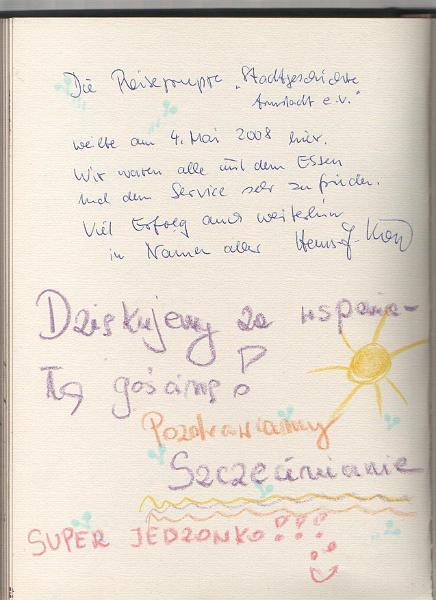 Die Reisegruppe „Stadtgeschichte
Arnstadt e.V."
weilte am 4. Mai 2008 hier.
Wir waren alle mit dem Essen
und dem Service sehr zufrieden.
Viel Erfolg auch weiterhin
in Namen aller Hans-J.
Dziękujemy za wspania-
łą gościnę
Pozdrawiamy
Szczecinianie
SUPER JEDZONKO!!!